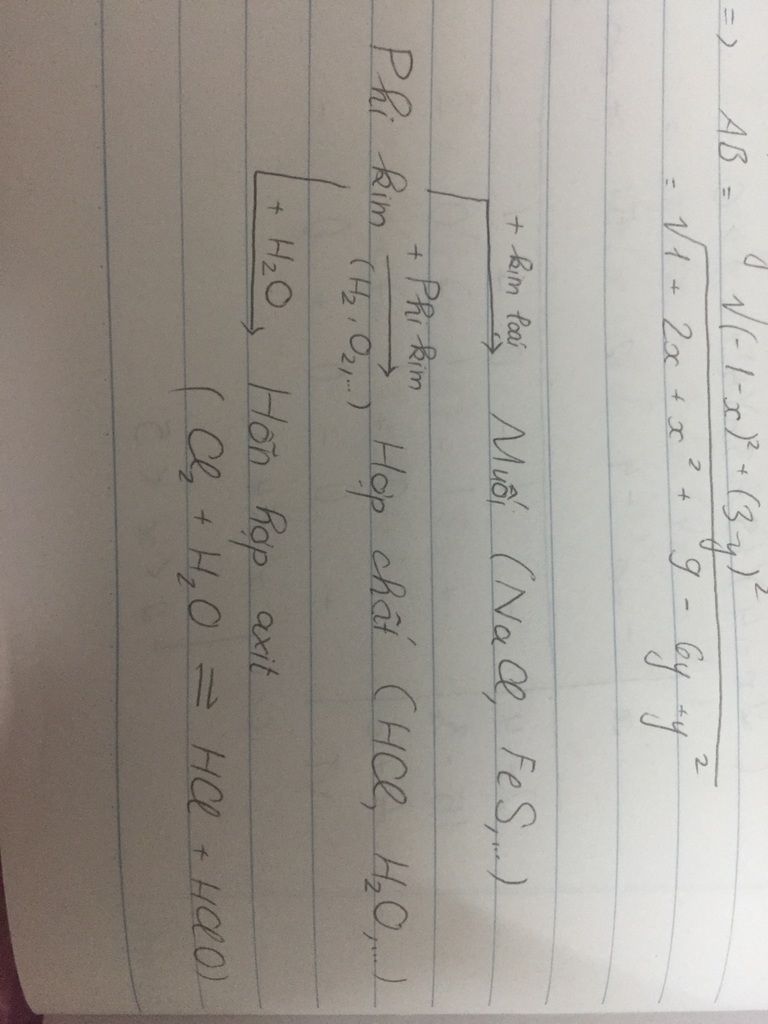 => AB = √(-1-x)² + (3-y)²
= √1 + 2x + x² + 9 - 6y + y²
+ kim loại → Muối (NaCl, FeS,...)
Phi kim + Phi kim (H₂, O₂,...) → Hợp chất (HCl, H₂O,...)
+ H₂O → Hỗn hợp axit
(Cl₂ + H₂O = HCl + HClO)